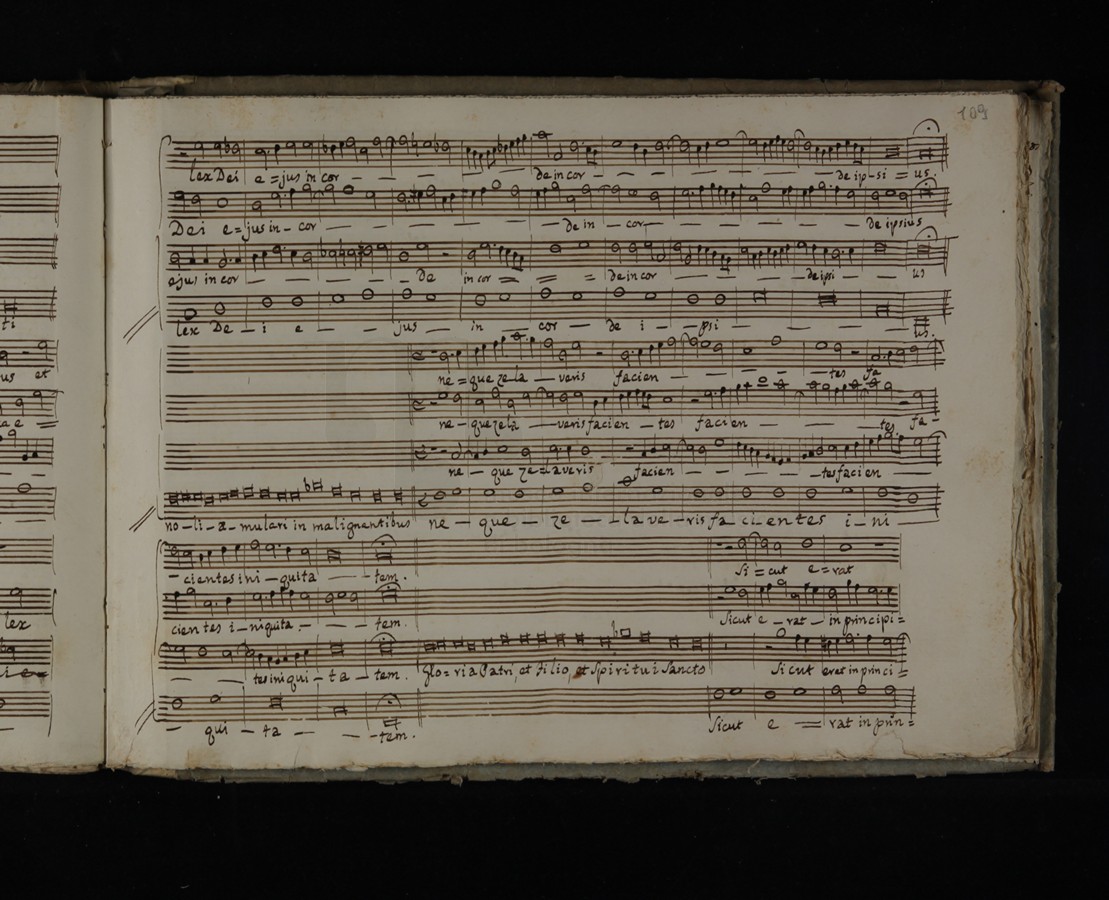 109
lex Dei e=jus in cor de in cor de ip-si = us.
ti
Dei e=jus in - cor de in - cor de ipsius
ejus in cor de in cor = = de in cor de ipsi us
lex De - i e jus in cor - de i - psi us.
us et
ne=que zela - veris facien tes fa
ne - que zela - veris facien - tes facien tes fa-
ne - que ze=laveris facien - tes facien
no-li-a-mulari in malignentibus ne - que - ze - la ve - ris fa cientes i - ni
- cientes ini - quita - tem. Si=cut e=rat
lex
cientes i-niquita - tem. Sicut e-rat - in principi=
tes iniqui - ta - tem. Glo=ria Patri, et Filio, et Spiritui Sancto Sicut erat in princi=
- qui - ta - - tem. Sicut e = rat in prin=